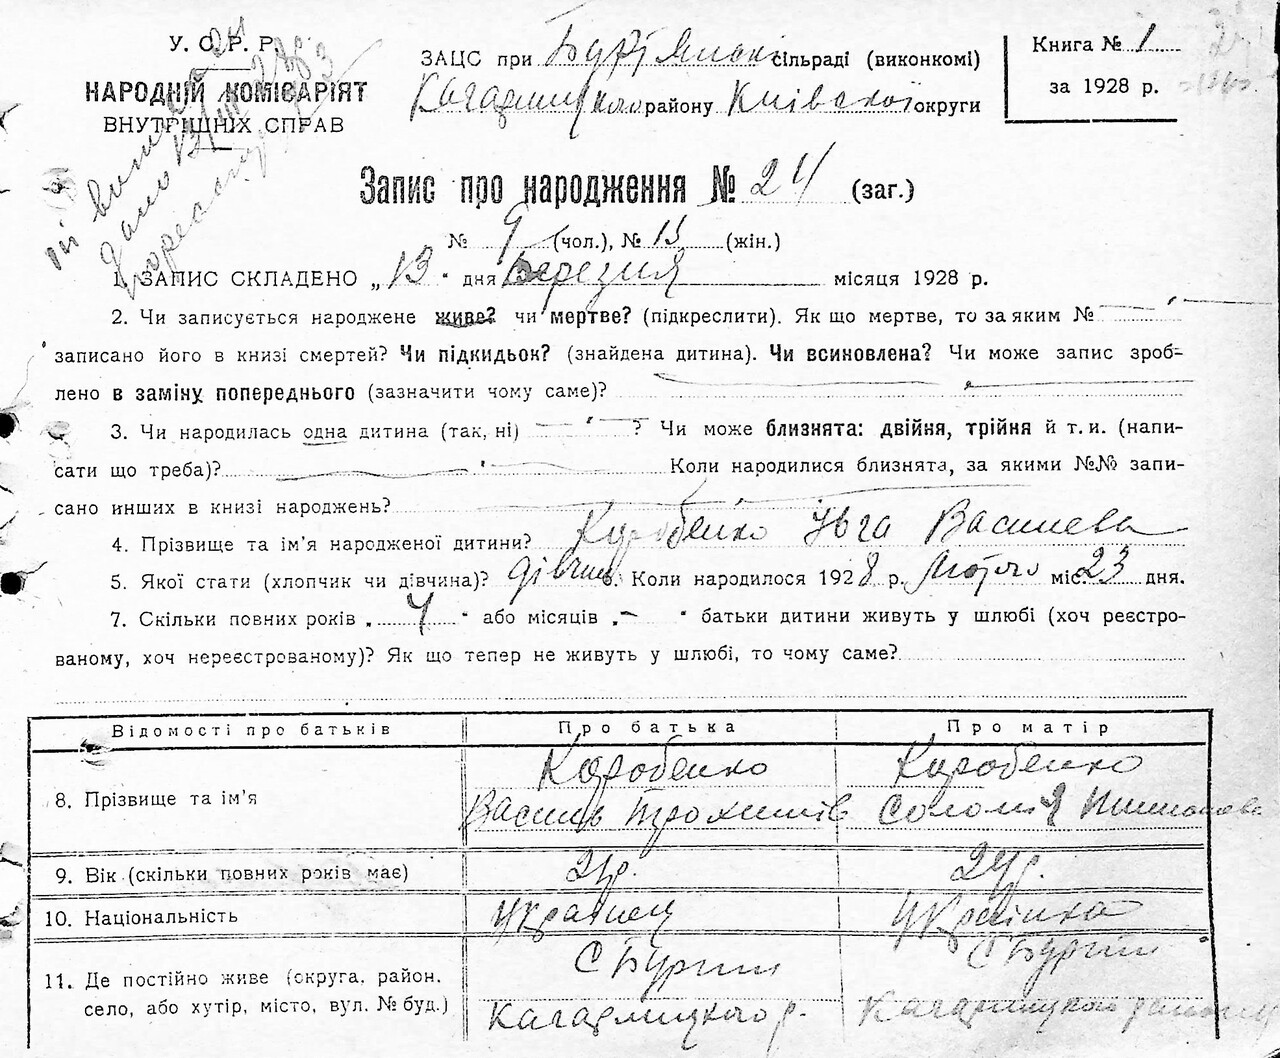 У. С. Р. Р.
НАРОДНІЙ КОМІСАРІЯТ
ВНУТРІШНІХ СПРАВ
ЗАЦС при сільраді (виконкомі)
Кагарлицького району Київської округи
Книга № 1
за 1928 р.
Запис про народження № 24 (заг.)
№ 9 (чол.), № 15 (жін.)
1. ЗАПИС СКЛАДЕНО „ 13 " дня Березня місяця 1928 р.
2. Чи записується народжене живе? чи мертве? (підкреслити). Як що мертве, то за яким №
записано його в книзі смертей? Чи підкидьок? (знайдена дитина). Чи всиновлена? Чи може запис зроб-
лено в заміну попереднього (зазначити чому саме)?
3. Чи народилась одна дитина (так, ні) ? Чи може близнята: двійня, трійня й т. и. (напи-
сати що треба)? Коли народилися близнята, за якими №№ запи-
сано инших в книзі народжень?
4. Прізвище та ім'я народженої дитини? Коробенко Ольга Василева
5. Якої стати (хлопчик чи дівчина)? дівчин 6. Коли народилося 1928 р. Лютого міс. 23 дня.
7. Скільки повних років „ 4 " або місяців „ — " батьки дитини живуть у шлюбі (хоч реєстро-
ваному, хоч нереєстрованому)? Як що тепер не живуть у шлюбі, то чому саме?
Відомості про батьків Про батька Про матір
8. Прізвище та ім'я Коробенко Коробенко
Василь Трохимів Соломія
9. Вік (скільки повних років має) 24р.
10. Національність Українец Українка
11. Де постійно живе (округа, район, С Бурти С Бурти
село, або хутір, місто, вул. № буд.) Кагарлицького р. Кагарлицького району